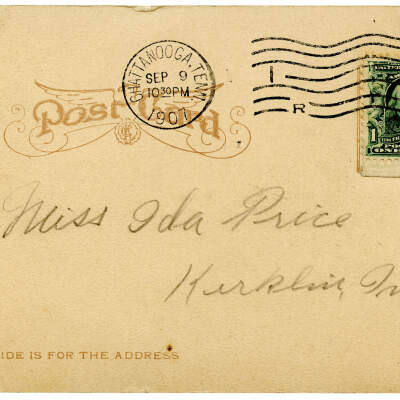 CHATTANOOGA, TENN.
SEP 9
10 30 PM
1907
R
Post Card
1
Miss Ida Price
Kirklin, In
IDE IS FOR THE ADDRESS